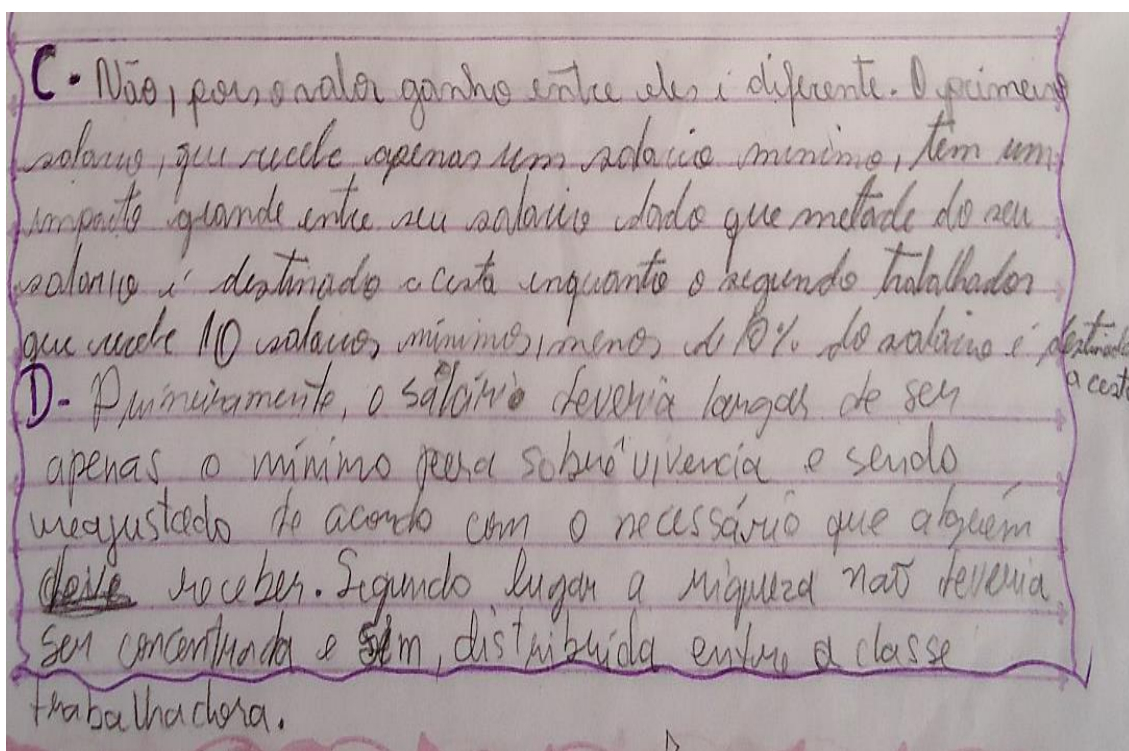 C- Não, pois o valor ganho entre eles é diferente. O primeiro
salario, que recebe apenas um salario minimo, tem um
impacto grande entre seu salario dado que metade do seu
salario é destinado a cesta enquanto o segundo trabalhador
que recebe 10 salarios mínimos, menos de 10% do salario é destinado
a cesta
D- Primeiramente, o salário deveria largar de ser
apenas o mínimo para sobrevivencia e sendo
reajustado de acordo com o necessário que alguém
deve receber. Segundo lugar a riqueza não deveria
ser concentrada e sim, distribuída entre a classe
trabalhadora.